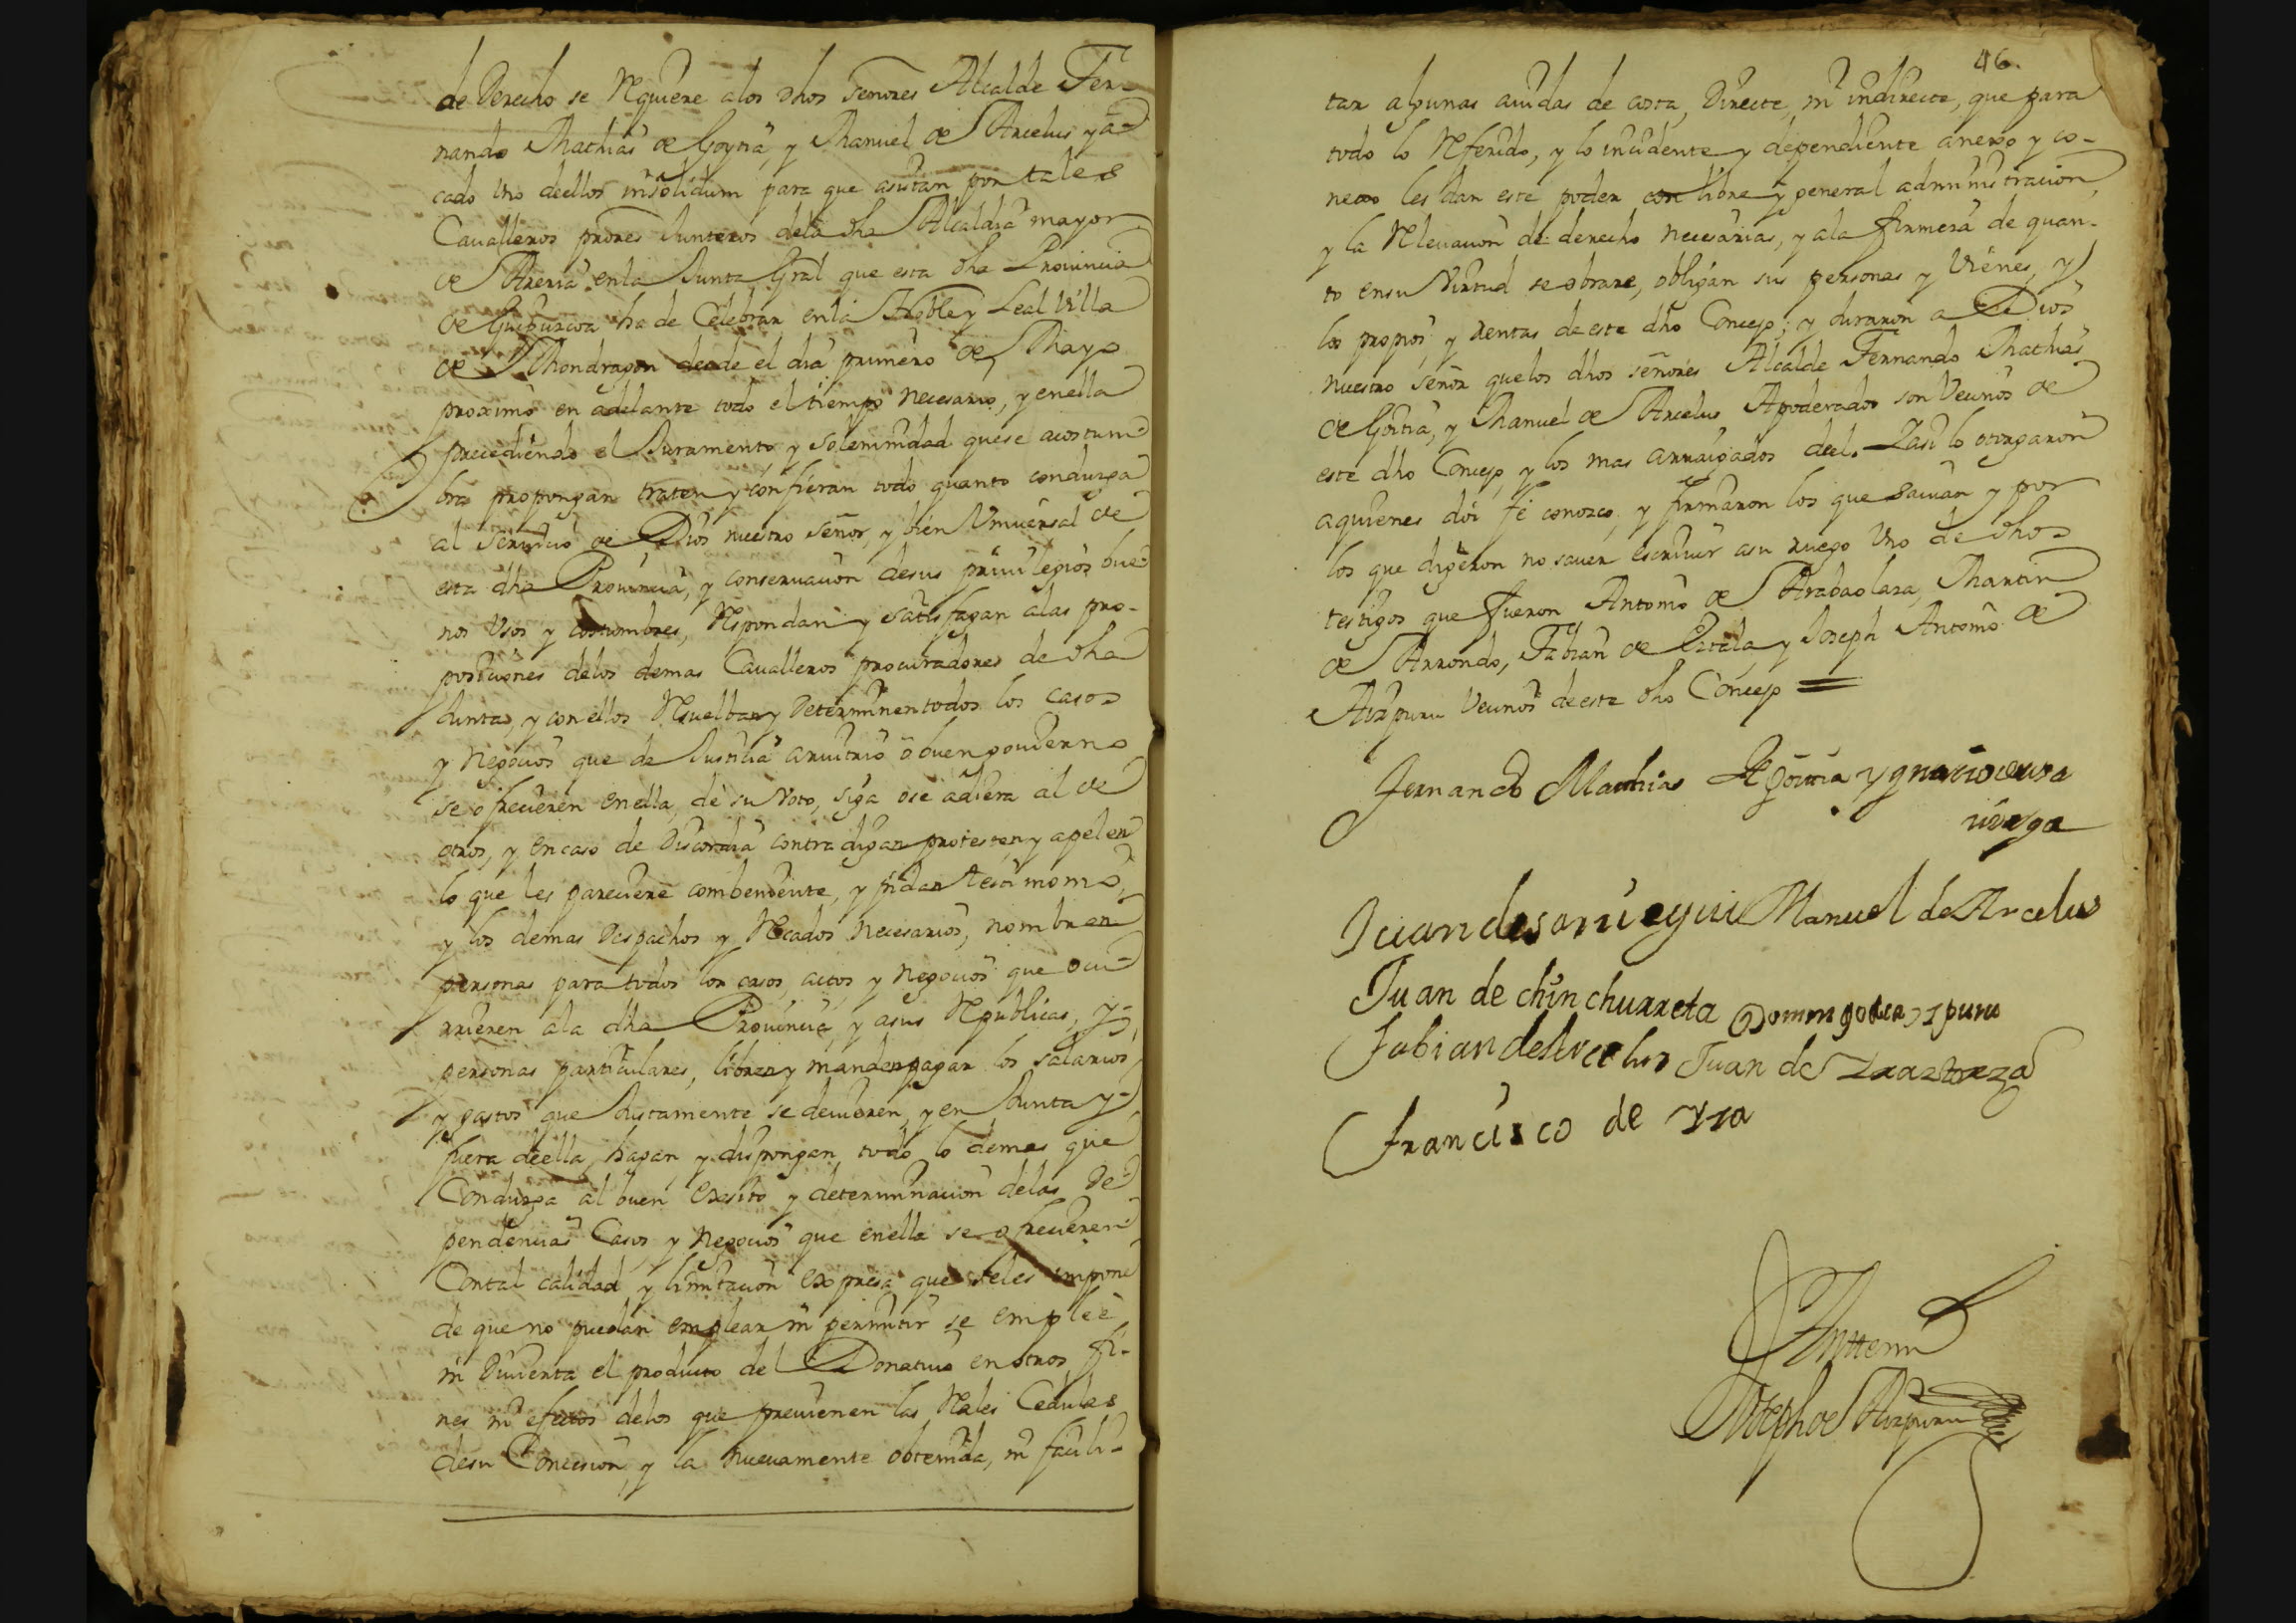 de Derecho se Requiere alos dhos Señores Alcalde Fer-
nando Mathias de Goytia, y Manuel de Arcelus y a
cado Uno deellos insolidum para que asistan por tales
Caualleros prores Junteros dela dha Alcaldia mayor
de Areria enla Junta Gral que esta dha Prouincia
de Guipuzcoa ha de Celebrar enla Noble y Leal Villa
de Mondragon desde el dia primero de Mayo
proximo en adelante todo el tiempo necesario, y enella
precediendo el Juramento y solemnidad quese acostum-
bra propongan traten y confieran todo quanto conduzga
al seruicio de Dios nuestro señor, y bien Vniuersal de
esta dha Prouincia, y conseruacion desus priuilegios bue-
nos Vsos y costumbres, Respondan y satisfagan alas pro-
posiciones delos demas Caualleros procuradores de dha
Junta, y con ellos Resuelban y Determinen todos los casos
y negocios que de Justicia aruitrio o buen gouierno
se ofrecieren enella, dé su Voto, siga o se adiera al de
otros, y encaso de Discordia contradigan protesten y apelen
lo que les pareciere combeniente, y pidan testimonio,
y los demas Despachos y Recados necesarios, nombren
personas para todos los casos, actos y negocios que ocu-
rrieren ala dha Prouincia, y asus Republicas, y
personas particulares, libren y manden pagar los salarios
y gastos que Justamente se deuieren, y en Junta y
fuera deella, hagan y dispongan todo lo demas que
Conduzga al buen Exsito y determinacion delas De-
pendencias Casos y negocios que enella se ofrecieren
Contal calidad y limitacion expresa que seles impone
de que no puedan emplear ni permitir se emplee
ni Diuierta el producto del Donatiuo en otros fi-
nes ni efectos delos que preuienen las Rales Cedulas
desu Concesion, y la nueuamente obtenida, ni facili-
46.
tar algunas auidas de costa, Directe, ni indirecte, que para
todo lo Referido, y lo incidente y dependiente anexo y co-
nexo les dan este poder con libre y general administracion,
y la Releuacion de derecho necesarias, y ala firmesa de quan-
to ensu Virtud se obrare, obligan sus personas y Vienes, y
los propios, y rentas de este dho Concejo; y juraron a Dios
nuestro señor quelos dhos señores Alcalde Fernando Mathias
de Goitia, y Manuel de Arcelus Apoderados son Vecinos de
este dho Concejo, y los mas arraigados deel. Y asi lo otorgaron
aquienes doi fe conozco, y firmaron los que sauian y por
los que digeron no sauer escriuir asu ruego Uno de dhos
testigos que fueron Antonio de Arabaolaza, Martin
de Arrondo, Fabian de Cirala y Joseph Antonio de
Aizpuru Vecinos de este dho Concejo
Fernando Mathias de Goitia
Manuel de Arcelus
Juan de chinchurreta
Fabian de Arcelus Juan de
Francisco de
Antemi
Joseph de Aizpuru